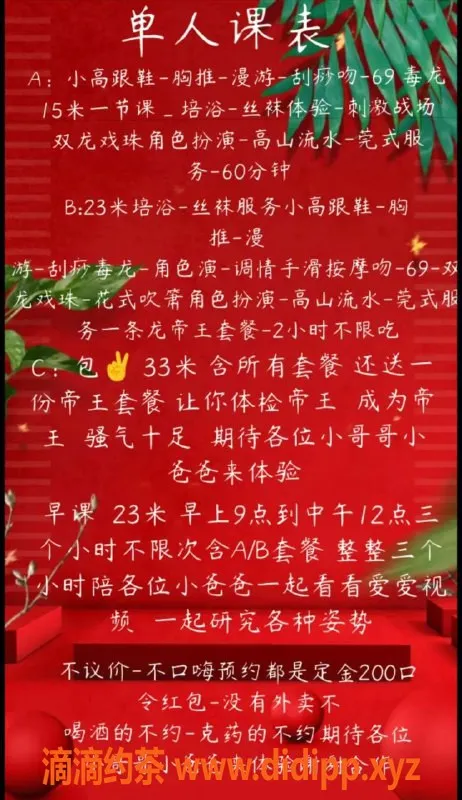 单人课表
A：小高跟鞋-胸推-漫游-刮痧吻-69 毒龙
15米一节课 _ 培浴-丝袜体验-刺激战场
双龙戏珠角色扮演-高山流水-莞式服
务-60分钟
B:23米培浴-丝袜服务小高跟鞋-胸
推-漫
游-刮痧毒龙-角色演-调情手滑按摩吻-69-双
龙戏珠-花式吹箫角色扮演-高山流水-莞式服
务一条龙帝王套餐-2小时不限吃
C：包✌ 33米 含所有套餐 还送一
份帝王套餐 让你体检帝王 成为帝
王 骚气十足 期待各位小哥哥小
爸爸来体验
早课 23米 早上9点到中午12点三
个小时不限次含A/B套餐 整整三个
小时陪各位小爸爸一起看看爱爱视
频 一起研究各种姿势
不议价-不口嗨预约都是定金200口
令红包-没有外卖不
喝酒的不约-克药的不约期待各位
小哥哥小爸爸来体验谢谢合作
滴滴约茶 - www.didipp.xyz